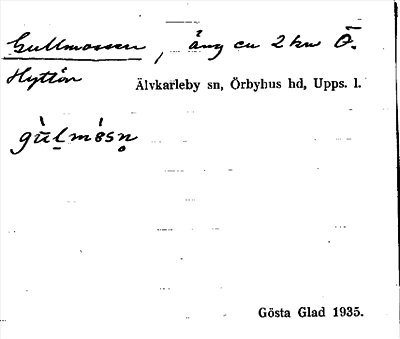 Gullmossen, äng ca 2 km Ö.
Hyttön
Älvkarleby sn, Örbyhus hd, Upps. l.
gùl̠mòsn̥
Gösta Glad 1935.